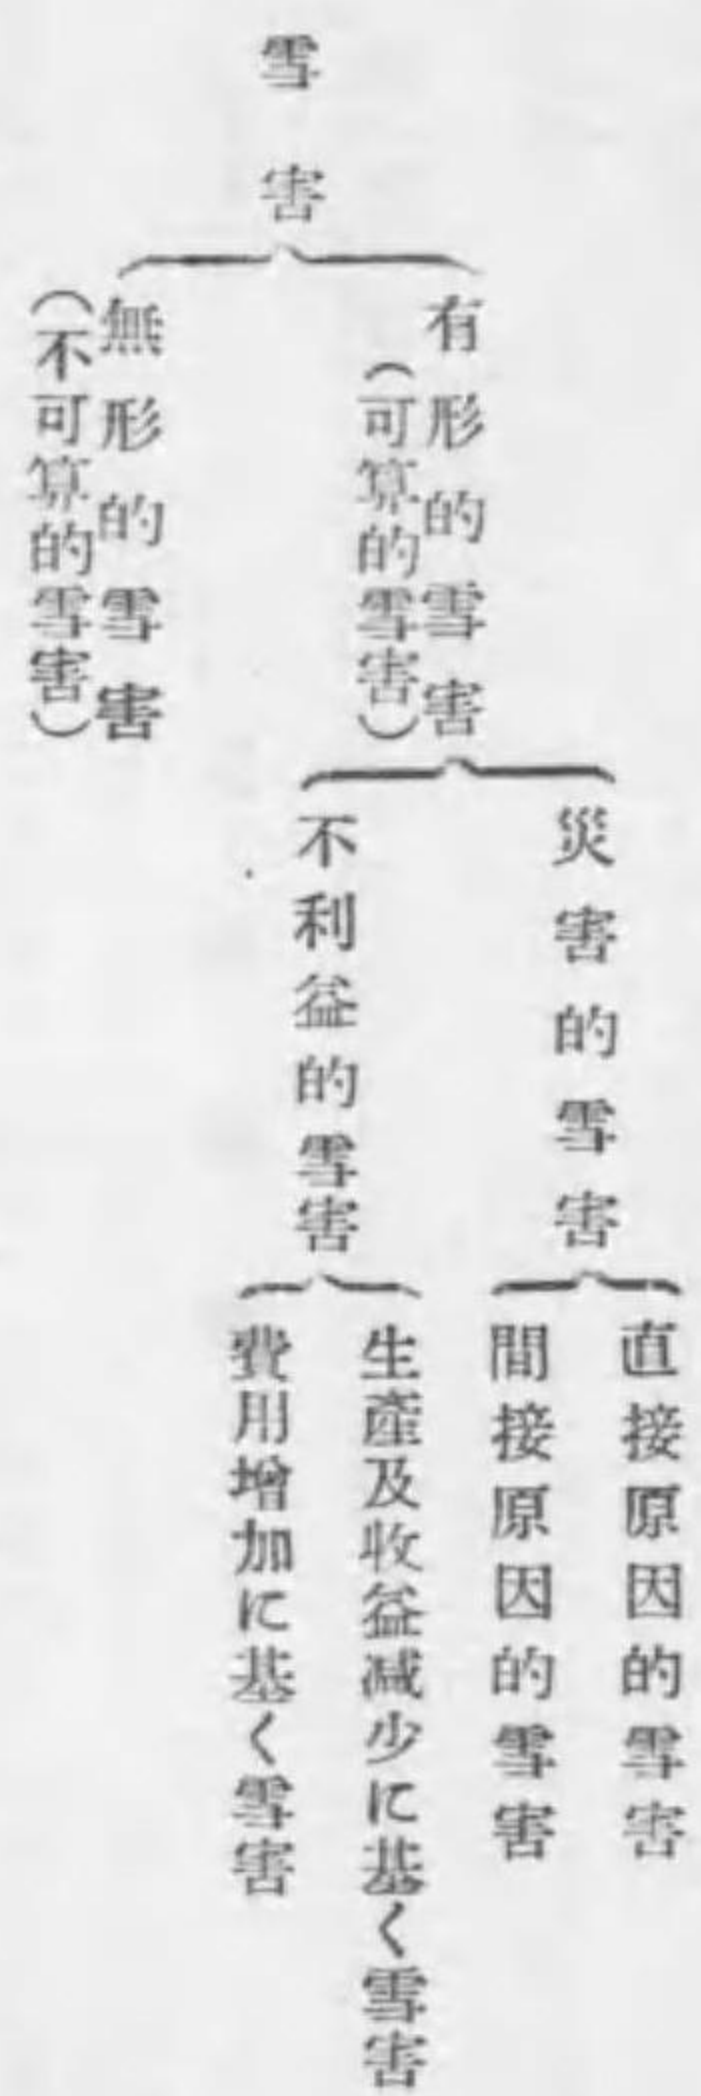 雪害
有形的雪害
(可算的雪害)
災害的雪害
直接原因的雪害
間接原因的雪害
不利益的雪害
生產及收益減少に基く雪害
費用增加に基く雪害
無形的雪害
(不可算的雪害)